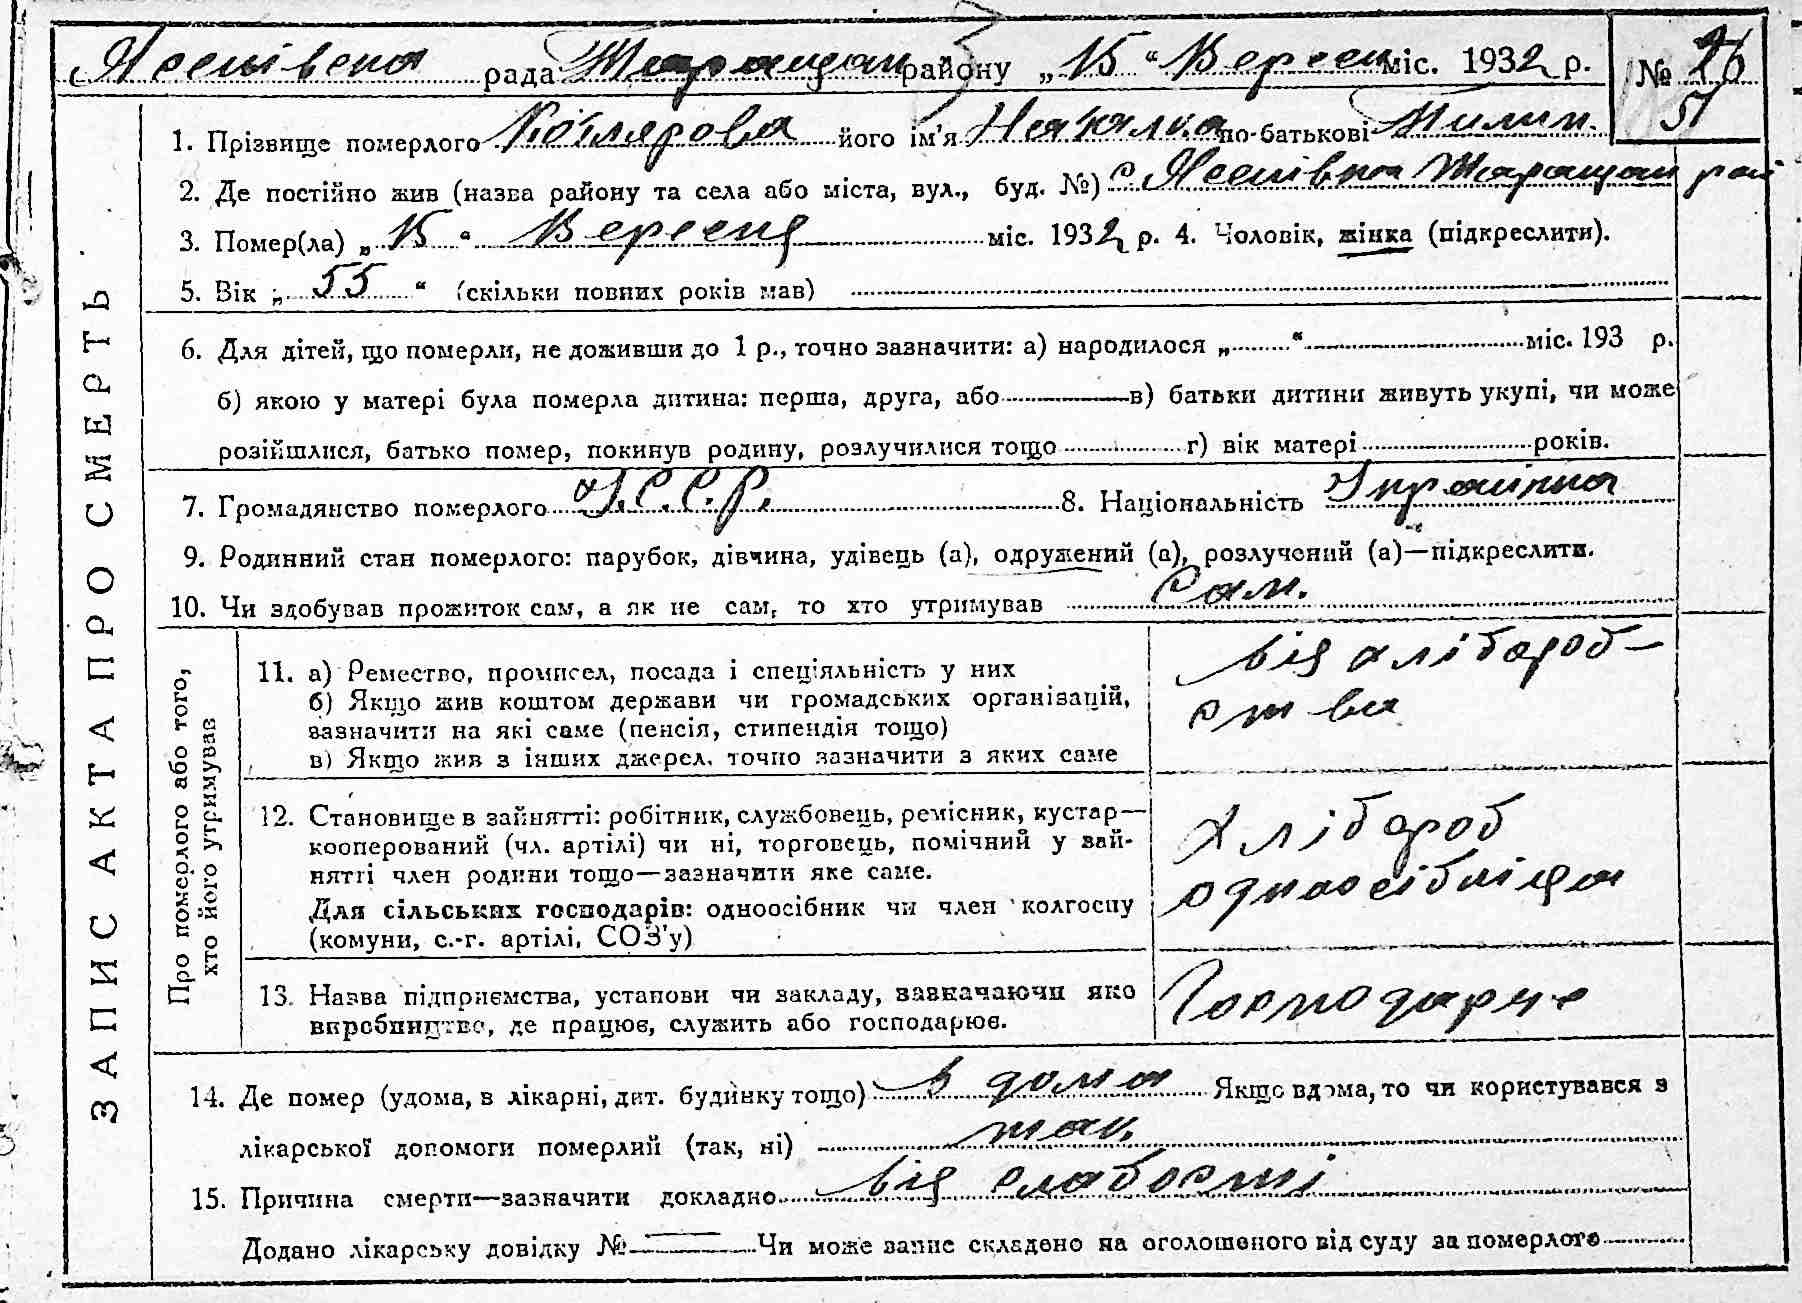 Лесовівська рада Таращан району „15“ Вересн міс. 1932 р. № 26
51
1. Прізвище померлого Котлярова його ім'я Наталка по-батькові Тилим.
2. Де постійно жив (назва району та села або міста, вул., буд. №) с. Таращан рай
3. Помер(ла) „15“ Вересня міс. 1932 р. 4. Чоловік, жінка (підкреслити).
5. Вік „55“ (скільки повних років мав)
6. Для дітей, що померли, не доживши до 1 р., точно зазначити: а) народилося „ “ міс. 193 р.
б) якою у матері була померла дитина: перша, друга, або в) батьки дитини живуть укупі, чи може
розійшлися, батько помер, покинув родину, розлучилися тощо г) вік матері років.
7. Громадянство померлого У.С.С.Р. 8. Національність Українка
9. Родинний стан померлого: парубок, дівчина, удівець (а), одружений (а), розлучений (а)—підкреслити.
10. Чи здобував прожиток сам, а як не сам, то хто утримував Сам.
ЗАПИС АКТА ПРО СМЕРТЬ
Про померлого або того,
хто його утримував
11. а) Ремество, промисел, посада і спеціяльність у них
б) Якщо жив коштом держави чи громадських організацій,
зазначити на які саме (пенсія, стипендія тощо)
в) Якщо жив з інших джерел, точно зазначити з яких саме
від хлібороб-
ства
12. Становище в зайнятті: робітник, службовець, ремісник, кустар—
кооперований (чл. артілі) чи ні, торговець, помічний у зай-
нятті член родини тощо—зазначити яке саме.
Для сільських господарів: одноосібник чи член колгоспу
(комуни, с.-г. артілі, СОЗ'у)
Хлібороб
одноосібниця
13. Назва підприємства, установи чи закладу, зазначаючи яко
виробництво, де працює, служить або господарює.
Господарче
14. Де помер (удома, в лікарні, дит. будинку тощо) в дома Якщо вдома, то чи користувався з
лікарської допомоги померлий (так, ні) так.
15. Причина смерти—зазначити докладно від слабости
Додано лікарську довідку № Чи може запис складено на оголошеного від суду за померлого